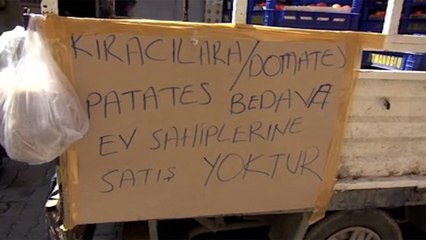 KIRACILARA/DOMATES
PATATES BEDAVA
EV SAHİPLERİNE
SATIŞ YOKTUR